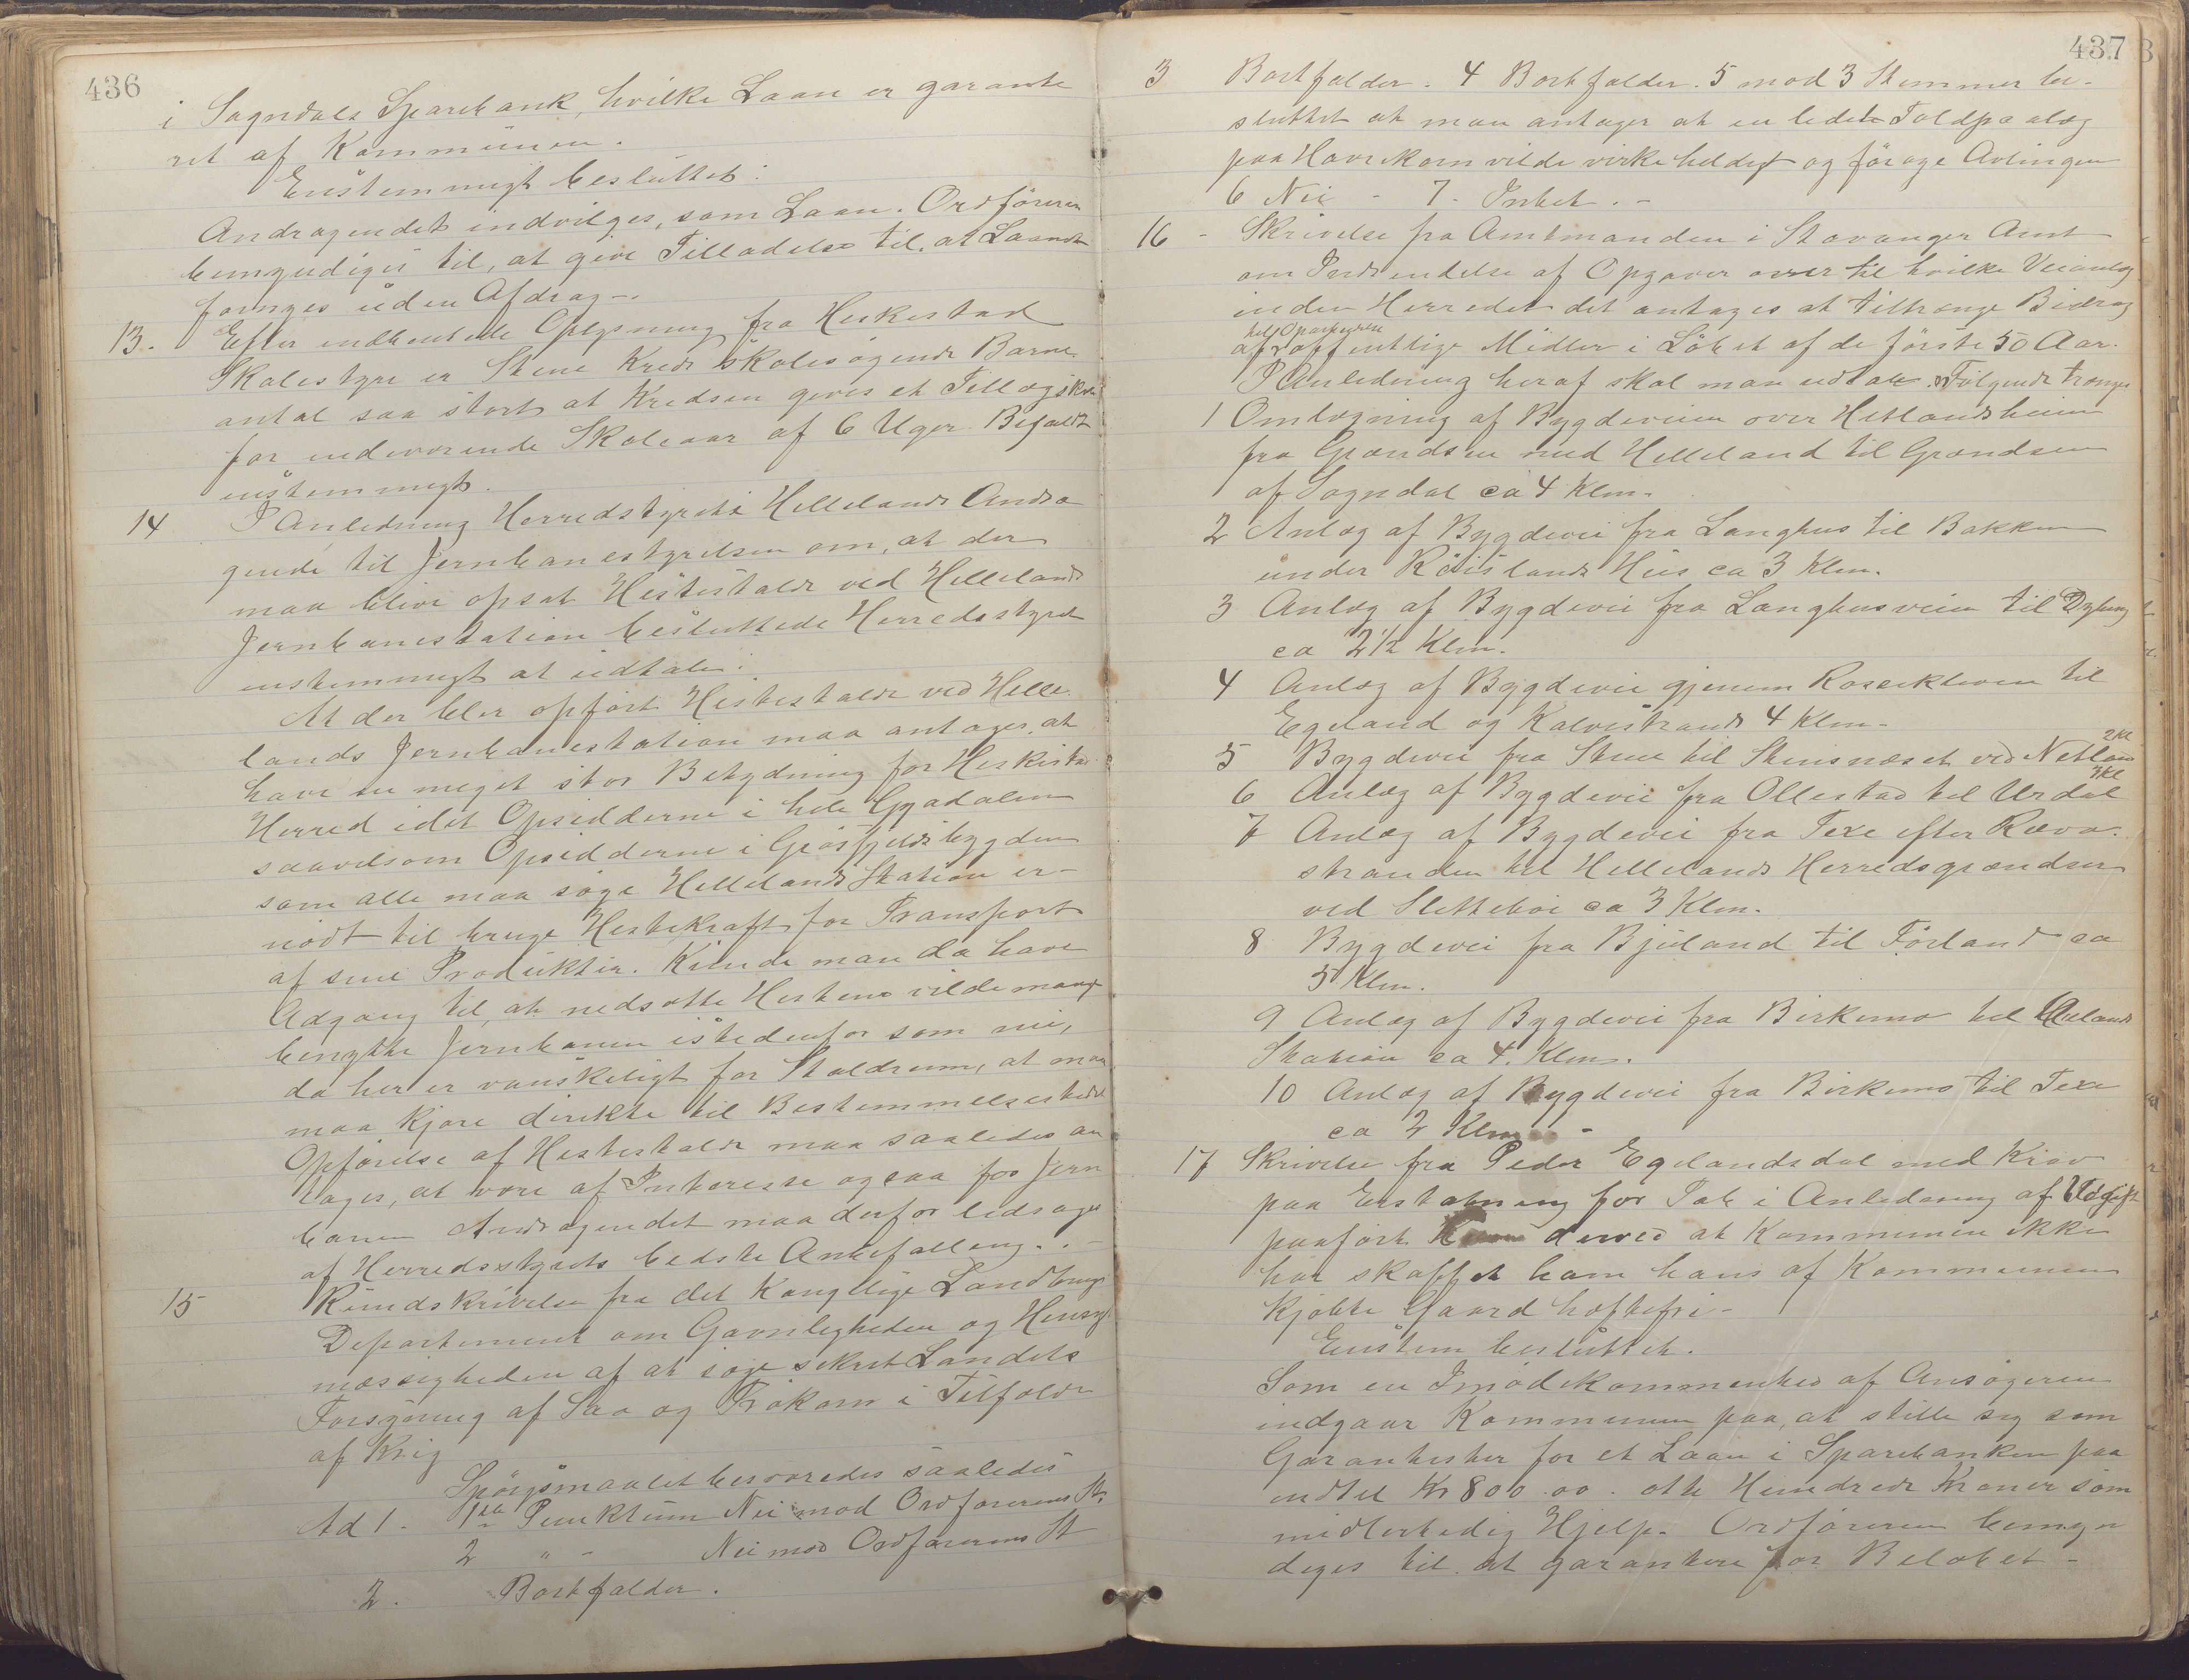 436
i Sogndals Sparebank, hvilke Laan er garante
ret af Kommunen.
Enstemmigt besluttet:
Andragendet indvilges, som Laan. Ordføreren
bemyndiges til, at give Tilladelse til, at Laanet
fornyes uden Afdrag -.
13. Efter indhentede Oplysning fra Heskestad
Skolestyre er Stene Kreds skolesøgende Barne
antal saa stort at Kredsen gives et Tillægskole
for indeværende Skoleaar af 6 Uger. Bifaldt
enstemmigt.
14 I Anledning Herredstyret i Hellelands Andra
gende til Jernbanestyrelsen om, at der
maa blive opsat Hestestalde ved Hellelands
Jernbanestation besluttede Herredsstyret
enstemmigt at udtale:
At der blir opført Hestestalde ved Helle
lands Jernbanestation maa antages at
have en meget stor Betydning for Heskestad
Herred idet Opsidderne i hele Gyadalen
saavelsom Opsidderne i Grøsfjeldsbygden
som alle maa søge Hellelands Station er
nødt til bruge Hestekraft for Transport
af sine Produkter. Kunde man da have
Adgang til, at nedsætte Hestene vilde mange
benytte Jernbanen istedenfor som nu,
da her er vanskeligt for Staldrum, at man
maa kjøre direkte til Bestemmelsesstedet
Opførelse af Hestestalde maa saaledes an
tages, at være af Interesse ogsaa for Jern
banen Andragendet maa derfor ledsages
af Herredsstyrets bedste Anbefalling. . -
15 Rundskrivelse fra det Kongelige Landbrugs
Departement om Gavnligheden og Hensigts
mæssigheden af at søge sikret Landets
Forsyning af Saa og Frøkorn i Tilfælde
af Krig
Spørgsmaalet besvaredes saaledes
Ad 1. 1ste Punktum Nei mod Ordførerens St.
2 " - Nei mod Ordførerens St
2. Bortfalder.
437
3 Bortfalder. 4 Bortfalder. 5 mod 3 Stemmer be-
sluttet at man antager at en Toldpaalæg
paa Havrekorn vilde virke heldigt og førøge Avlingen
6 Nei - 7 - Intet. -
16 - Skrivelse fra Amtmanden i Stavanger Amt
om Indsendelse af Opgaver over til hvilke Veianlæg
inden Herredet det antages at tiltrænge Bidrag
til Oparbeidelse
af offentlige Midler i Løbet af de første 50 Aar.
I Anledning heraf skal man udtale. Følgende trænges
1 Omlægning af Bygdeveien over Hetlandsheien
fra Grændsen med Helleland til Grændsen
af Sogndal ca 4 Klm.
2 Anlæg af Bygdevei fra Langhus til Bakken
under Røislands Hus ca 3 Klm.
3 Anlæg af Bygdevei fra Langhusveien til Dybing
ca 2 1/2 Klm.
4 Anlæg af Bygdevei gjenem Roseikleven til
Egeland og Kalvestrand 4 Klm -
5 Bygdevei fra Stene til Stensnæset ved Netland 2 Kl
6 Anlæg af Bygdevei fra Ollestad til Urdal Kl
7 Anlæg af Bygdevei fra Texe efter Ræva
stranden til Hellelands Herredsgrændser
ved Slettebøe ca 3 Klm.
8 Bygdevei fra Bjuland til Førland ca
5 Klm.
9 Anlæg af Bygdevei fra Birkemo til Uelands
Station ca 4. Klm.
10 Anlæg af Bygdevei fra Birkemo til Texe
ca 2 Klm -
17 Skrivelse fra Peder Egelandsdal med Krav
paa Erstatning for Tab i Anledning af Udgift
paaført derved at Kommunen ikke
har skaffet ham hans af Kommunen
kjøbte Gaard heftefri -
Enstem besluttet.
Som en Imødekommenhed af Ansøgeren
indgaar Kommunen paa, at stille sig som
Garantister for et Laan i Sparebanken paa
indtil Kr 800.00. otte Hundrede Kroner som
midlertedig Hjelp. Ordføreren bemyn
diges til at garantere for Beløbet -